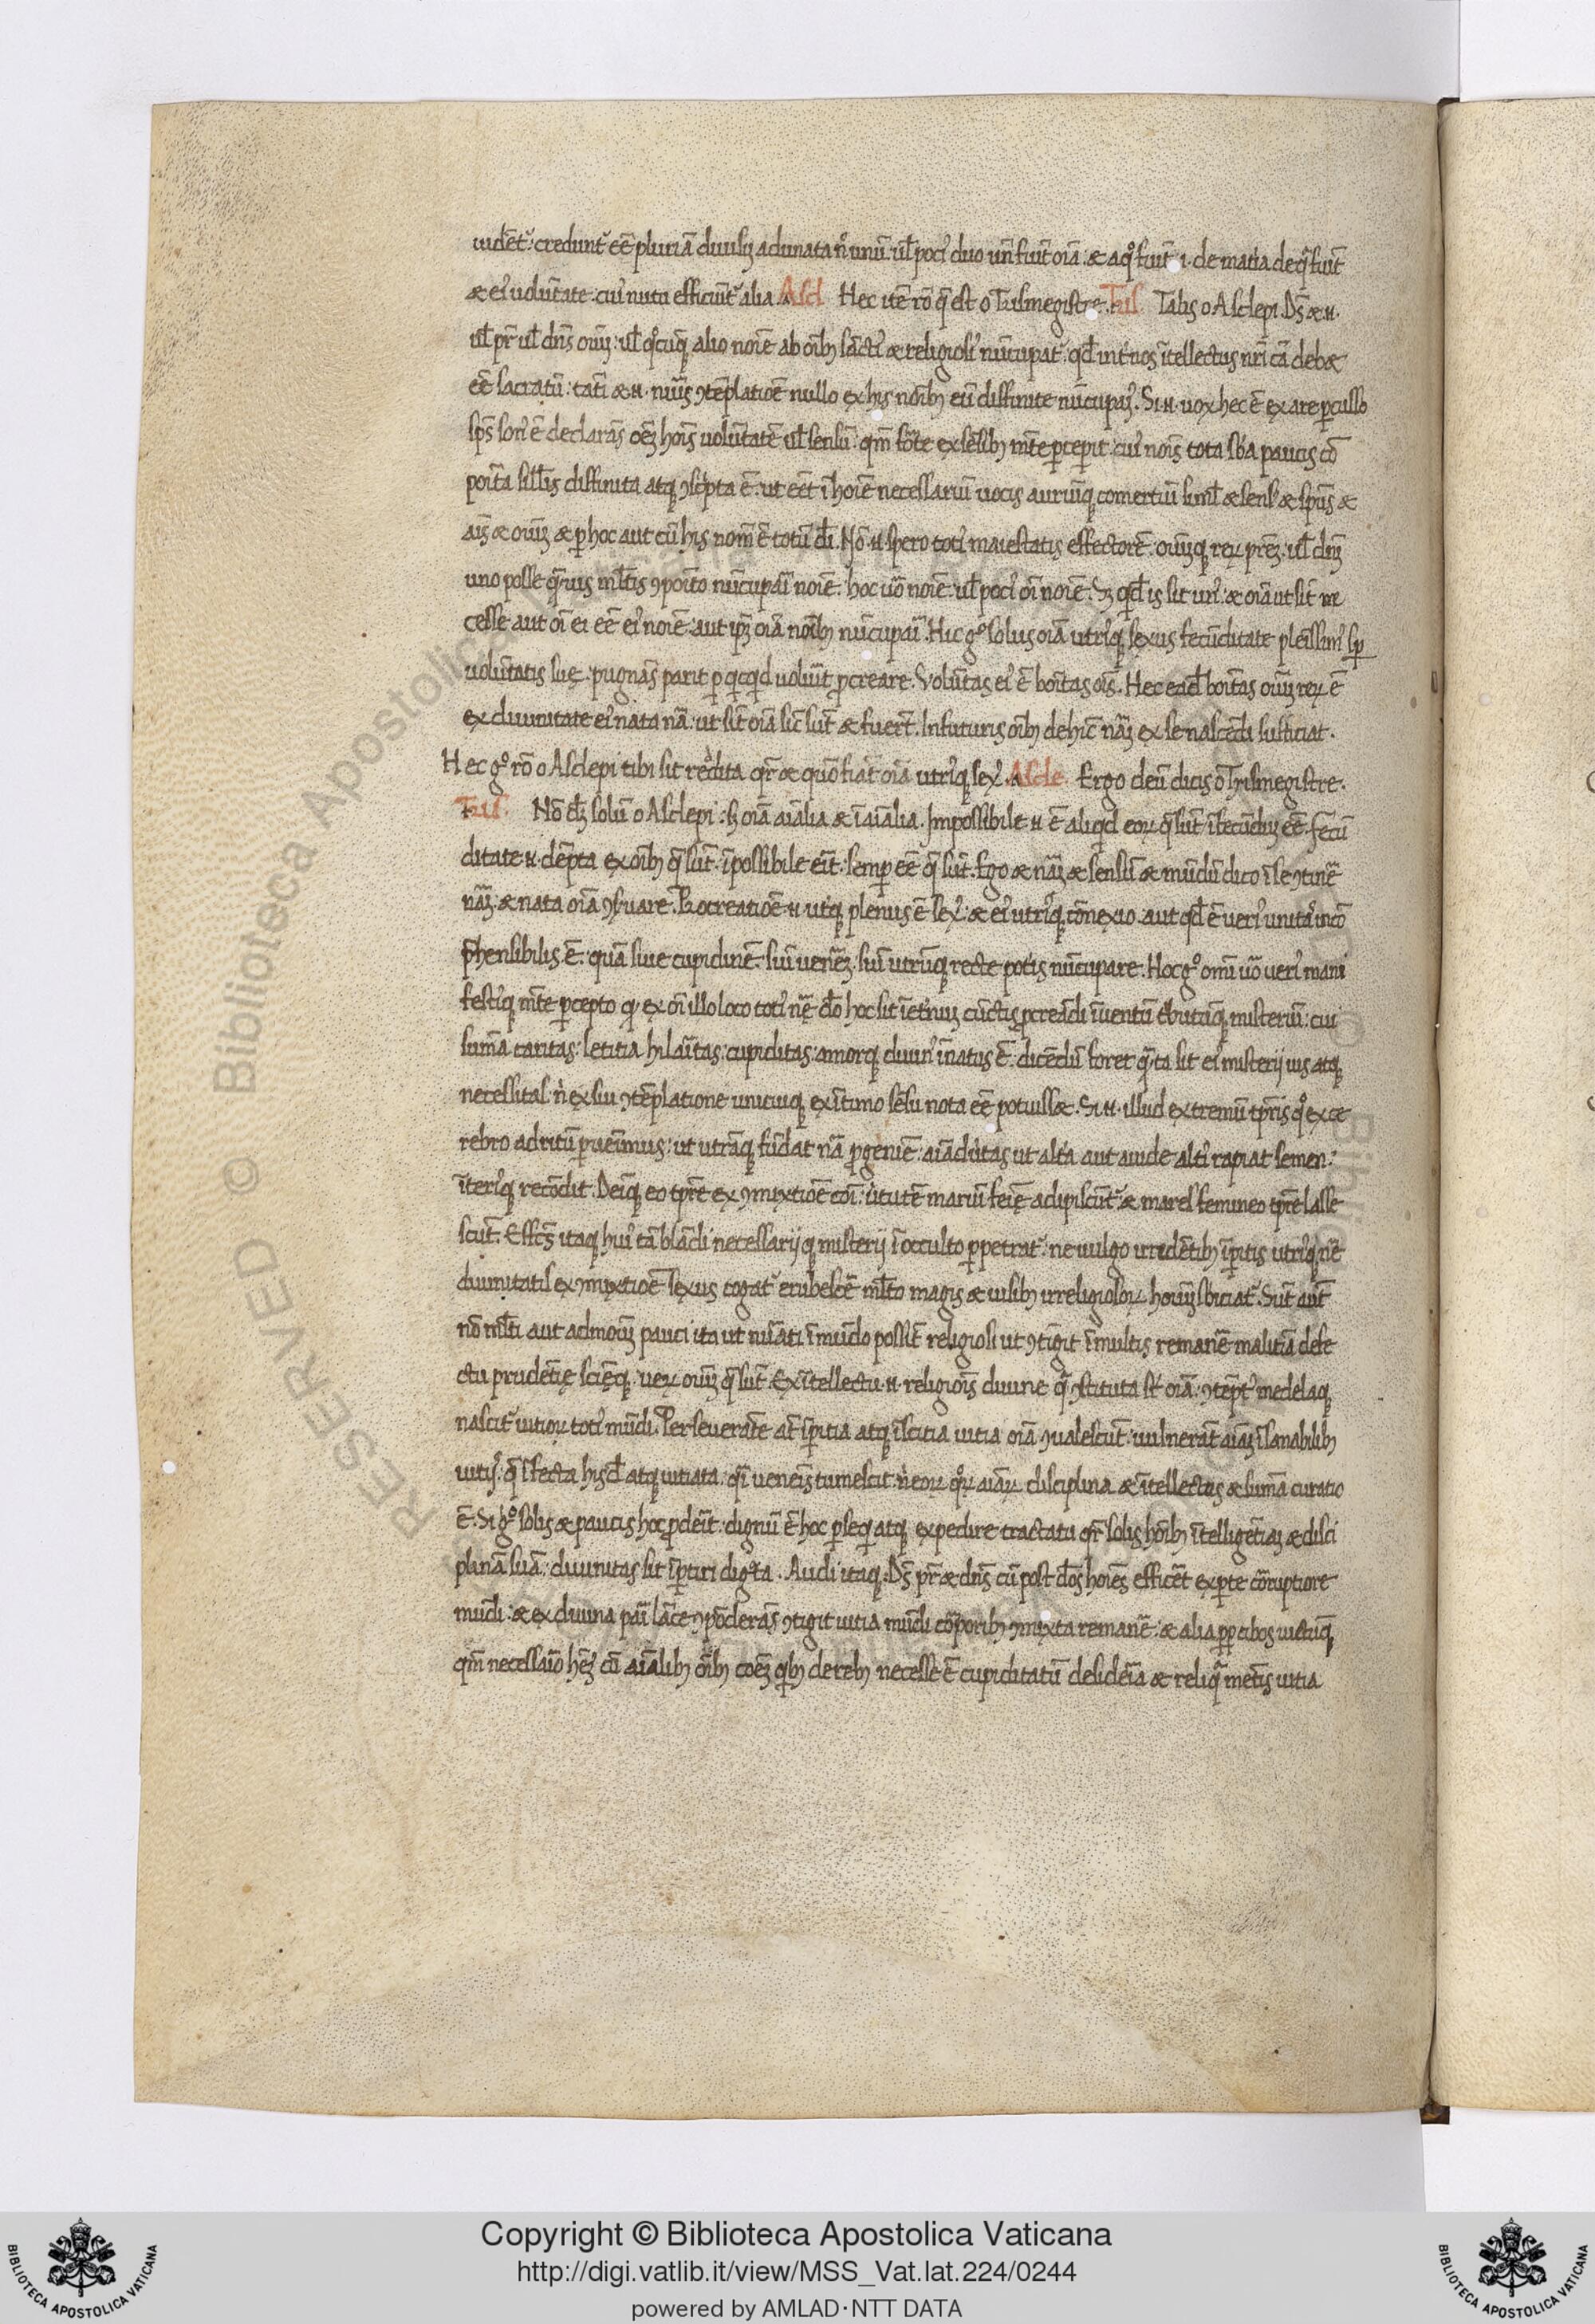 uidēt᷑. credunt᷑ eē plura diuisis adunata n̄ unū. ul̄ poci᷑ duo un̄ fiūt oīa. & a qͦ fiūt .i. de mat̄ia de q̄ fiūt
& ei᷑ uolūtate. cui᷑ nutu efficiūt᷑ alia. Ascl. Hec itē rō q̄ est o Trismegistre. Tris. Talis o Asclepi. Ds̄ & .n.
ul̄ pr̄ ul̄ dn̄s oīuꝫ. ul̄ qͦcūqꝫ alio noīe ab oībꝫ sc̄ti᷑ & religiosi᷑ nūcupat᷑. qd̄ int̄ nos ītellectus nr̄i cā debet
eē sacratū. tāti & .n. nuīs ꝯtēplatiōe nullo ex his noībꝫ eū diffinite nūcupaꝫ. Si .n. uox hec ē ex aere ꝑcusso
sps̄ son᷑ ē declarās oēꝫ hoīs uolūtatē ul̄ sensū. qm̄ forte ex sēsibꝫ mēte ꝑcepit. cui᷑ noīs tota sb̄a paucis cō
poīta sill̄is diffinita atqꝫ ē. ut eēt ī hoīe necessariū uocis auriūqꝫ comertiū simul & sens᷑ & spūs &
aīs & oīuꝫ & ꝑ hoc aut cū his nom̄ ē totū dī. Nō .n. spero toti᷑ maiestatis effectorē. oīuꝫqꝫ reꝝ prēꝫ. ul̄ dn̄ꝫ
uno posse q̄uis ml̄tis ꝯpoīto nūcupari noīe. hoc uō noīe. ul̄ poci᷑ oī noīe. Sꝫ qd̄ is sit un᷑. & oīa ut sit ne
cesse aut oī ei eē ei᷑ noīe. aut ipꝫ oīa noībꝫ nūcupari. Hic gͦ solus oīa utri᷑qꝫ sexus fecūditate pleissim᷑ sꝑ
uolūtatis suę. p̄gnās parit ꝑ qcqd uoluit ꝓcreare. Volūtas ei᷑ ē boītas oīs. Hec ead̄ boītas oīuꝫ reꝝ ē
ex diuinitate ei᷑ nata nā. ut sīt oīa sic̄ sūt & fuert̄. In futuris oībꝫ dehīc nāꝫ ex se nascēdi sufficiat.
Hec gͦ rō o Asclepi tibi sit reddita qr̄ & quō fiāt oīa utri᷑qꝫ sex᷑. Ascle. Ergo deū dicis o Trismegistre.
Tris. Nō dꝫ solū o Asclepi. sꝫ oīa aīalia & īaīalia. Impossibile .n. ē aliqd eoꝝ q̄ sūt īfecūduꝫ eē. fecū
ditate .n. dēpta ex oībꝫ q̄ sūt. īpossibile erit. semꝑ eē q̄ sūt. Ego & nāꝫ & sensū & mūdū dico ī se ꝯtinē
nāꝫ. & nata oīa ꝯseruare. Procreatiōe .n. ut᷑qꝫ plenus ē sex᷑. & ei᷑ utri᷑qꝫ cōnexio. aut qd̄ ē ueri᷑ unitas incō
ꝑhensibilis. ē. quā siue cupidinē. siue uenēꝫ. siue utrūqꝫ recte poti᷑s nūcupare. Hoc gͦ omī uō ueri᷑ mani
festi᷑qꝫ mēte ꝑcepto qꝫ ex oī illo loco toti᷑ nę dō hoc sit īetnuꝫ cūctis ꝓcreādi īuentū tributūqꝫ misteriū. cui
sūma caritas. letitia hilaritas. cupiditas. amorqꝫ diuin᷑ inatus ē. dicēdū foret q̄ta sit ei᷑ misterij uis atqꝫ
necessitas. nī ex sui ꝯtēplatione unicuiqꝫ ex ītimo sēsu nota eē potuisset. Si .n. illud extremū tꝑis qͦ ex ce
rebro ad ritū ꝑueīmus. ut utraqꝫ fūdat nā ꝓgeniē. aīaduertas ut alt̄a aut auide alt̄i᷑ rapiat semen.
īteri᷑qꝫ recōdit. Deīqꝫ eo tꝑre ex ꝯmixtiōe coī. uirtutē mariū feīę adipiscūt᷑. & mares femineo tꝑre lasse
scūt. Effc̄s itaqꝫ hui᷑ tā blādi necessarijqꝫ misterij ī occulto ꝑpetrat᷑. ne uulgo irridētibꝫ īꝑitis utri᷑qꝫ nę
diuinitatis ex ꝯmixtiōe sexus cogat᷑ erubescē ml̄to magis & uisibꝫ irreligiosoꝝ hoīuꝫ sb̄iciat᷑. Sūt aūt
nō ml̄ti aut admōꝫ pauci ita ut nuīati ī mūdo possīt religiosi ut ꝯtigit ī multis remanē malitiā defe
ctu prudētię sciēqꝫ. ueꝝ oīuꝫ q̄ sūt. Ex ītellectu .n. religioīs diuine q̄ ꝯstituta st̄ oīa. ꝯtēpt᷑ medelaqꝫ
nascit᷑ uitioꝝ toti᷑ mūdi. Perseuerāte at̄ īꝑitia atqꝫ īscitia uitia oīa ꝯualescūt. uulnerāt aīaꝫ īsanabilibꝫ
uitij᷑. q̄ īfecta hisd̄ atqꝫ uitiata. qͣi uenenīs tumescit. nī eoꝝ qͦꝝ aīaꝝ disciplina & ītellectus & sūma curatio
ē. Si gͦ solis & paucis hoc ꝓderit. dignū ē hoc ꝑseqi atqꝫ expedire tractatu qr̄ solis hoībꝫ ītelligētiaꝫ & disci
plinā suā. diuinitas sit īꝑtiri dignata. Audi itaqꝫ. Ds̄ pr̄ & dn̄s cū post dōs hoīes efficēt ex ꝑte corruptiore
mūdi. & ex diuina pari lāce ꝯpōderās ꝯtigit uitia mūdi corporibꝫ ꝯmixta remanē. & alia ꝓpt̄ cibos uictūqꝫ
qm̄ necessario hēꝫ cū aīalibꝫ oībꝫ coēꝫ qͥbꝫ de rebꝫ necesse ē cupiditatū desidēia & reliq̄ mētis uitia
RESERVED © Biblioteca Apostolica
Copyright © Biblioteca Apostolica Vaticana
http://digi.vatlib.it/view/MSS_Vat.lat.224/0244
powered by AMLAD·NTT DATA
BIBLIOTECA APOSTOLICA VATICANA
BIBLIOTECA APOSTOLICA VATICANA